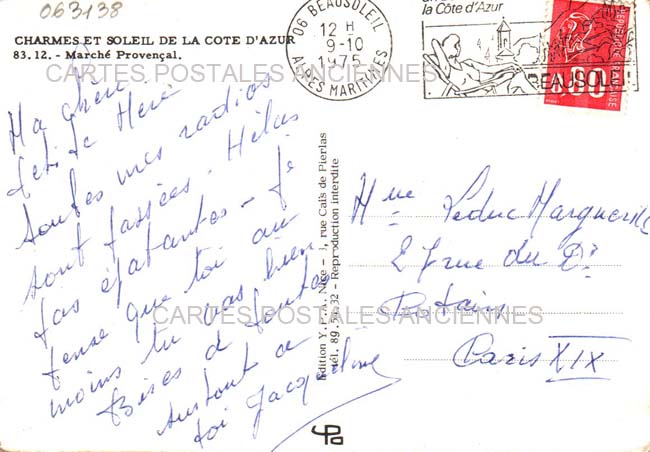 063138
CHARMES ET SOLEIL DE LA COTE D'AZUR
83.12. - Marché Provençal.
CARTES POSTALES ANCIENNES
06 BEAUSOLEIL
12 H
9-10
1975
ALPES MARITIMES
la Côte d'Azur
BEAUSOLEIL
0.80
REPUBLIQUE FRANCAISE
Ma chère
petite Mère
toutes mes radios
sont passées. Hélas
pas épatantes - Je
pense que toi au
moins tu vas bien
Bises à toutes
surtout à
toi Jacqueline
Edition Y. P. A. Nice - 1, rue Caïs de Pierlas
tél. 89.56.32 - Reproduction interdite
Mme Leduc Marguerite
27 rue du Dr
Potain
Paris XIX
CARTES POSTALES ANCIENNES